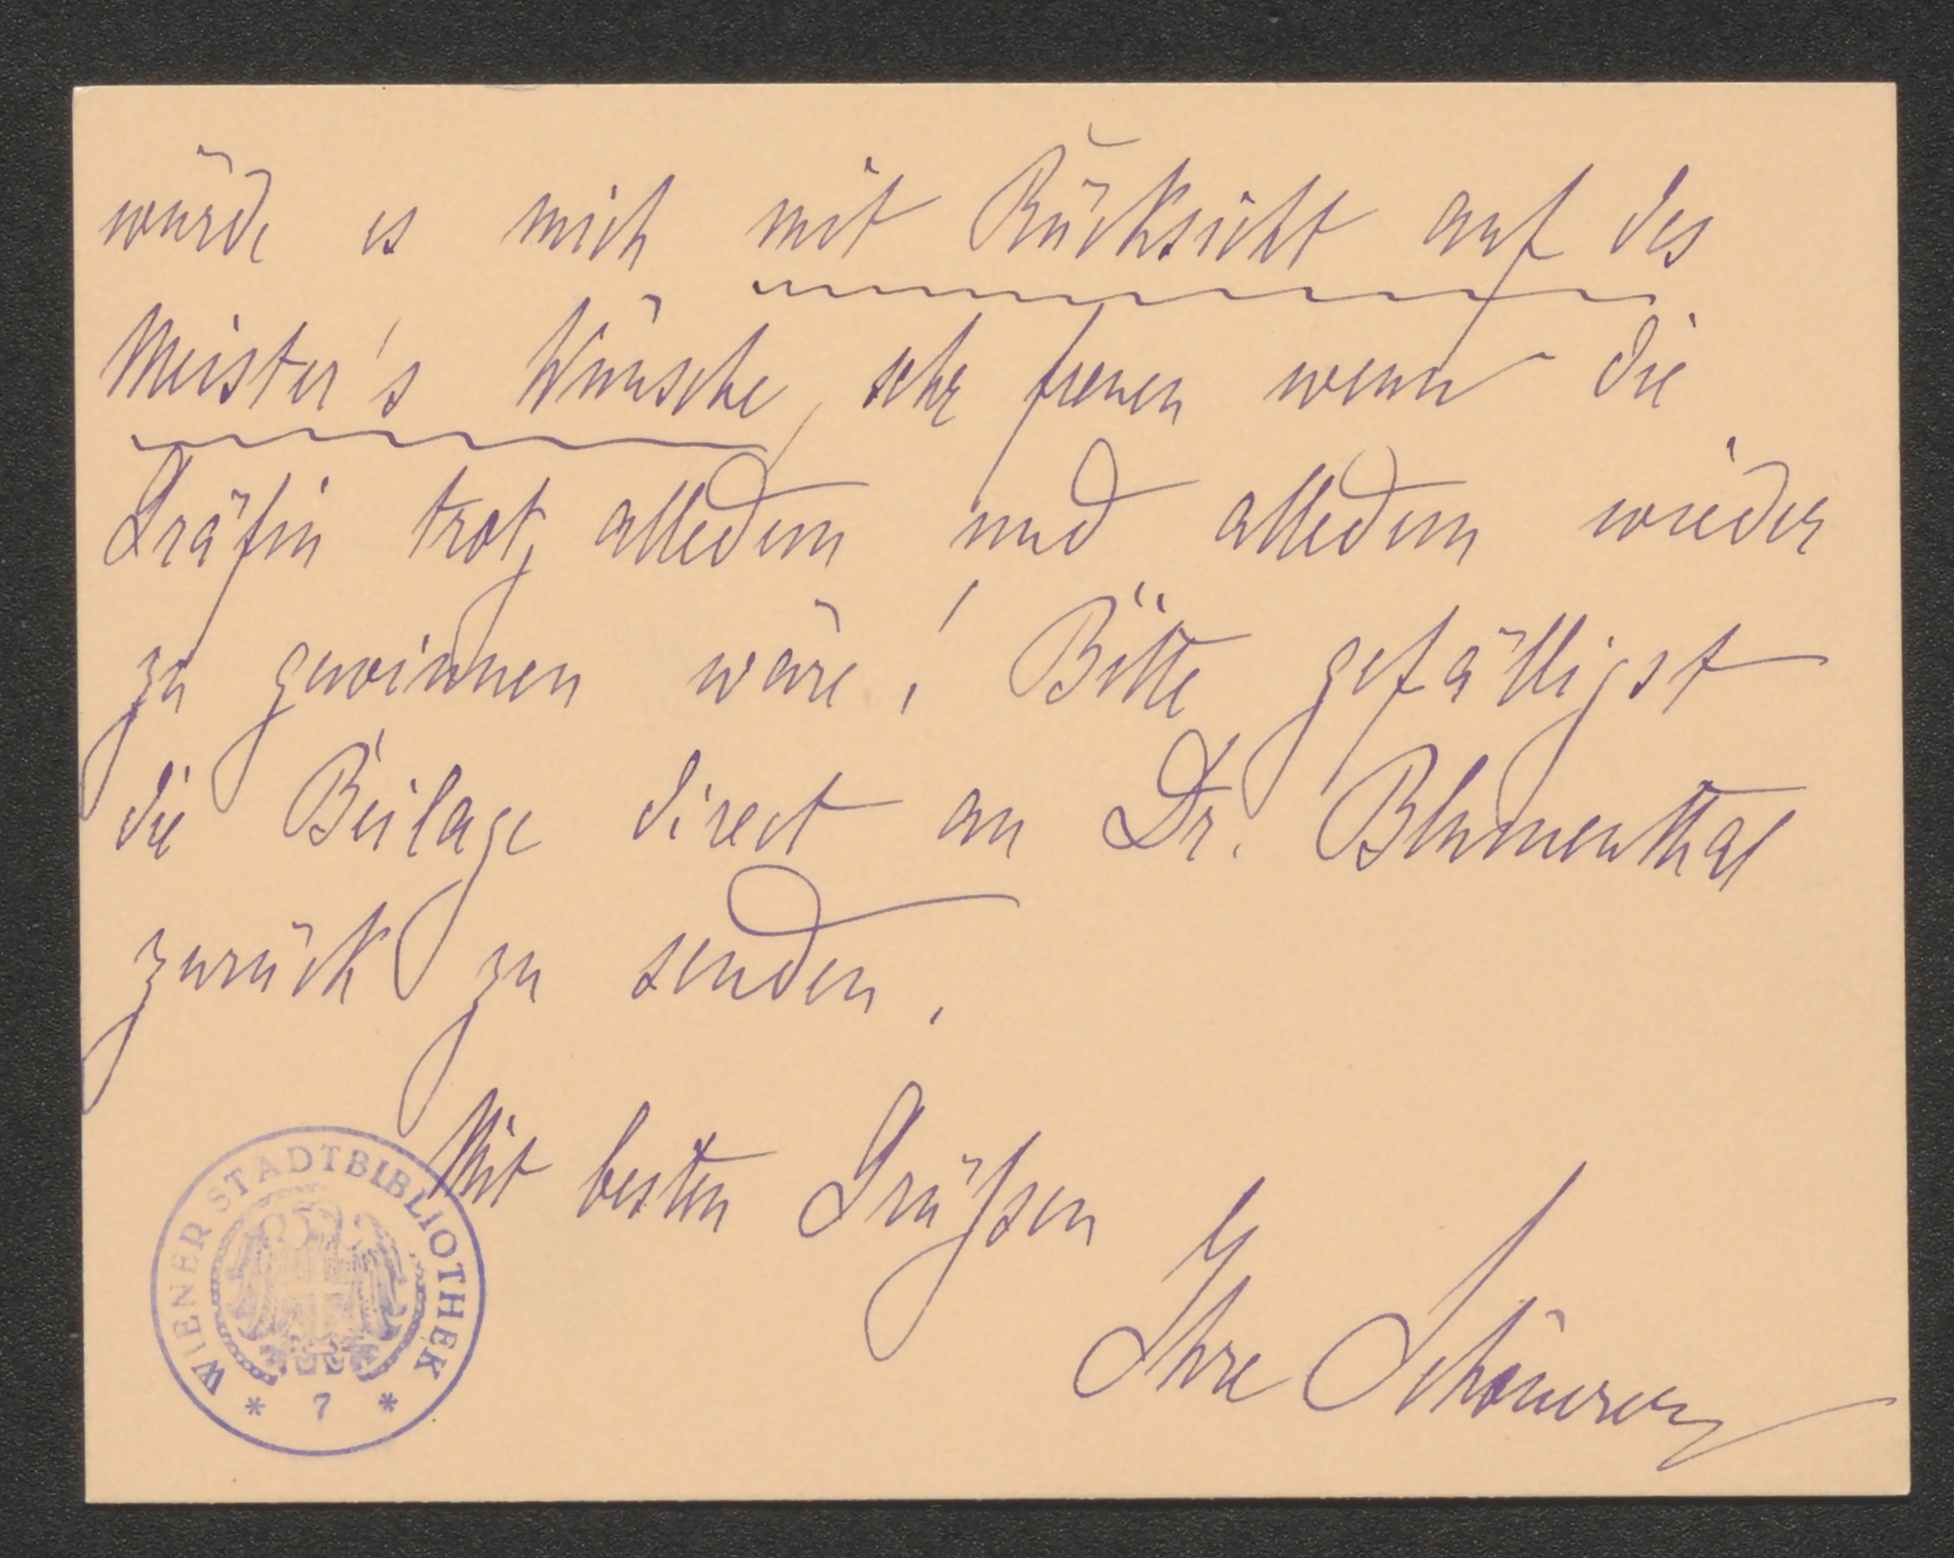 würde es mich mit Rücksicht auf des
Meister's Wünsche, sehr freuen wenn die
Gräfin trotz alledem und alledem wieder
zu gewinnen wäre! Bitte gefälligst
die Beilage direct an Dr. Blumenthal
zurück zu senden.
Mit besten Grüßsen
Ihre Schönerer
WIENER STADTBIBLIOTHEK
* 7 *